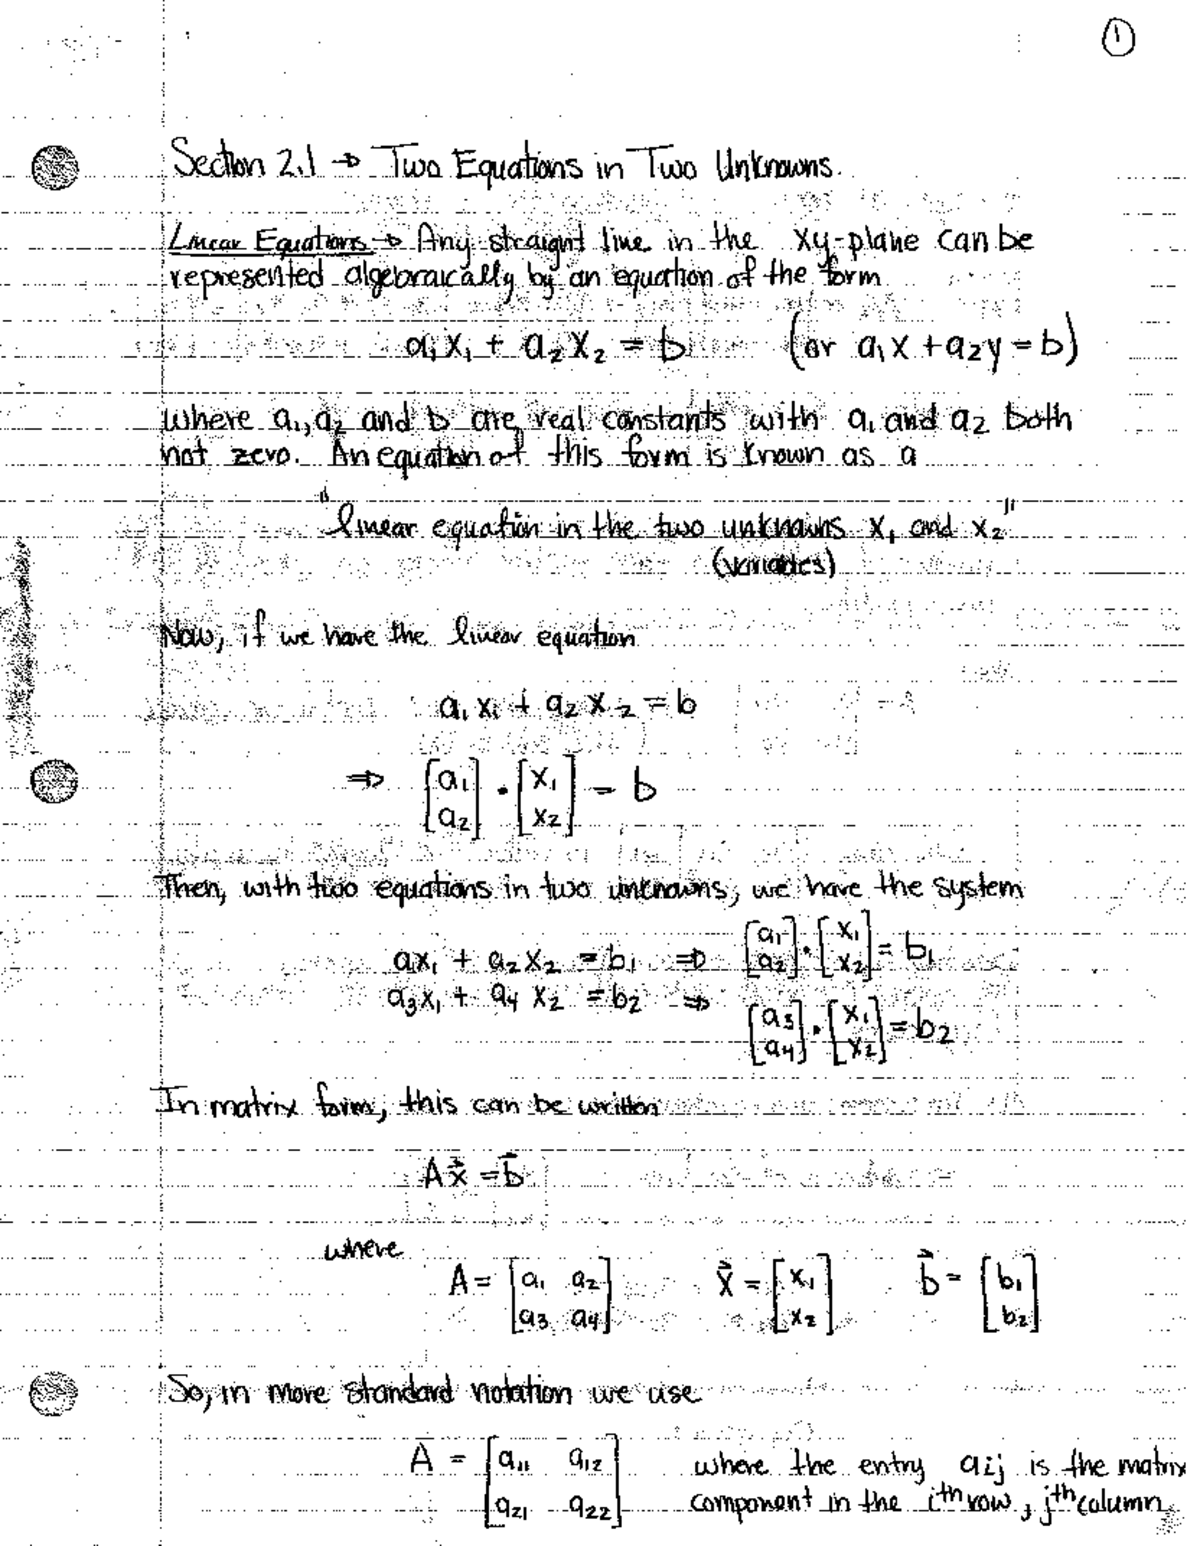 ①
Section 2.1 → Two Equations in Two Unknowns.
Linear Equations → Any straight line in the xy-plane can be
represented algebraically by an equation of the form
a₁x₁ + a₂x₂ = b (or a₁x + a₂y = b)
where a₁, a₂ and b are real constants with a₁ and a₂ both
not zero. An equation of this form is known as a
"linear equation in the two unknowns x₁ and x₂"
(variables)
Now, if we have the linear equation
a₁x₁ + a₂x₂ = b
⇒ [a₁ a₂] · [x₁ x₂] = b
Then, with two equations in two unknowns, we have the system
ax₁ + a₂x₂ = b₁ ⇒ [a₁ a₂] · [x₁ x₂] = b₁
a₃x₁ + a₄x₂ = b₂ ⇒ [a₃ a₄] · [x₁ x₂] = b₂
In matrix form, this can be written
Ax⃗ = b⃗
where
A = [a₁ a₂ a₃ a₄] x⃗ = [x₁ x₂] b⃗ = [b₁ b₂]
So, in more standard notation we use
A = [a₁₁ a₁₂ where the entry aij is the matrix
a₂₁ a₂₂] component in the iᵗʰ row, jᵗʰ column,